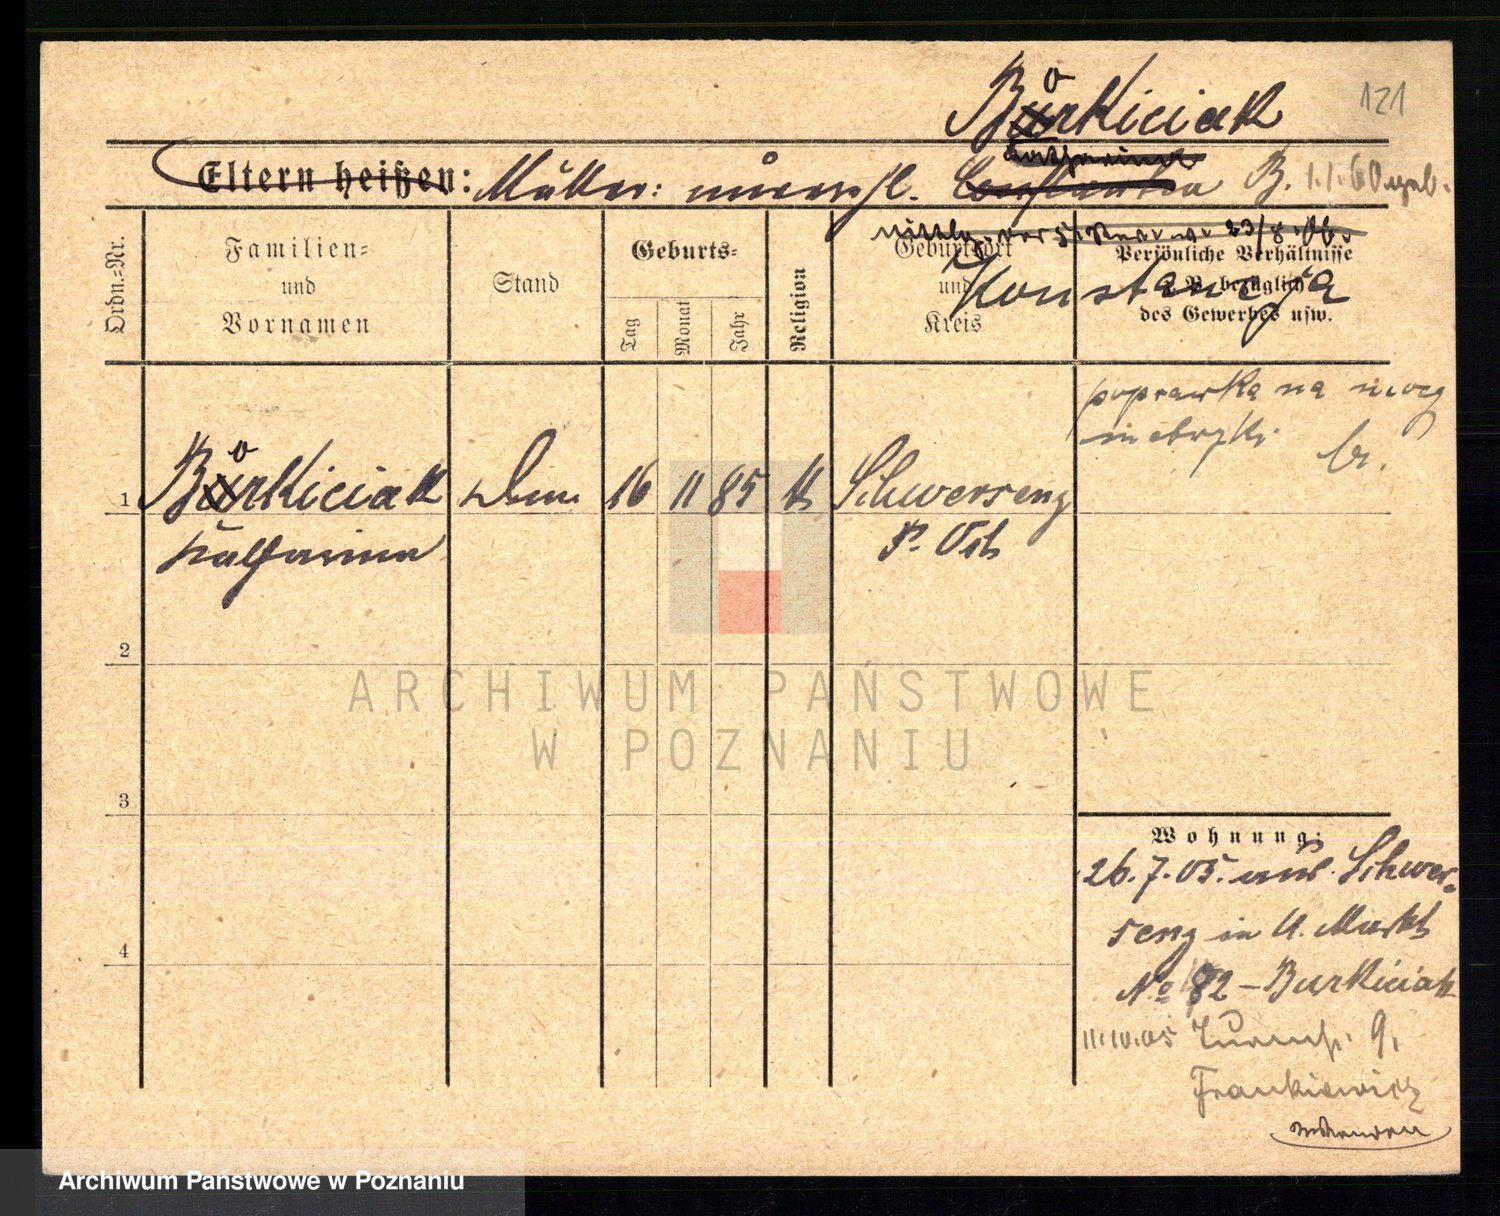 121
Borkiciak
Eltern heißen: Mutter: unverehl. B. 1.1.60 geb.
Konstancja
Ordn.-Nr.
Familien-
und
Vornamen
Stand
Geburts-
Tag
Monat
Jahr
Religion
Geburtsort
und
Kreis
Persönliche Verhältnisse
z. B. bezüglich
des Gewerbes usw.
poprawka na mocy
1
Borkiciak
Katharina
16
11
85
K
Schwersenz
P. Ost
2
3
4
Wohnung:
26.7.05. aus Schwer-
senz in A. Markt
No 82 - Burkiciak
11.10.05 9,
Frankiewicz
ARCHIWUM PAŃSTWOWE
W POZNANIU
Archiwum Państwowe w Poznaniu